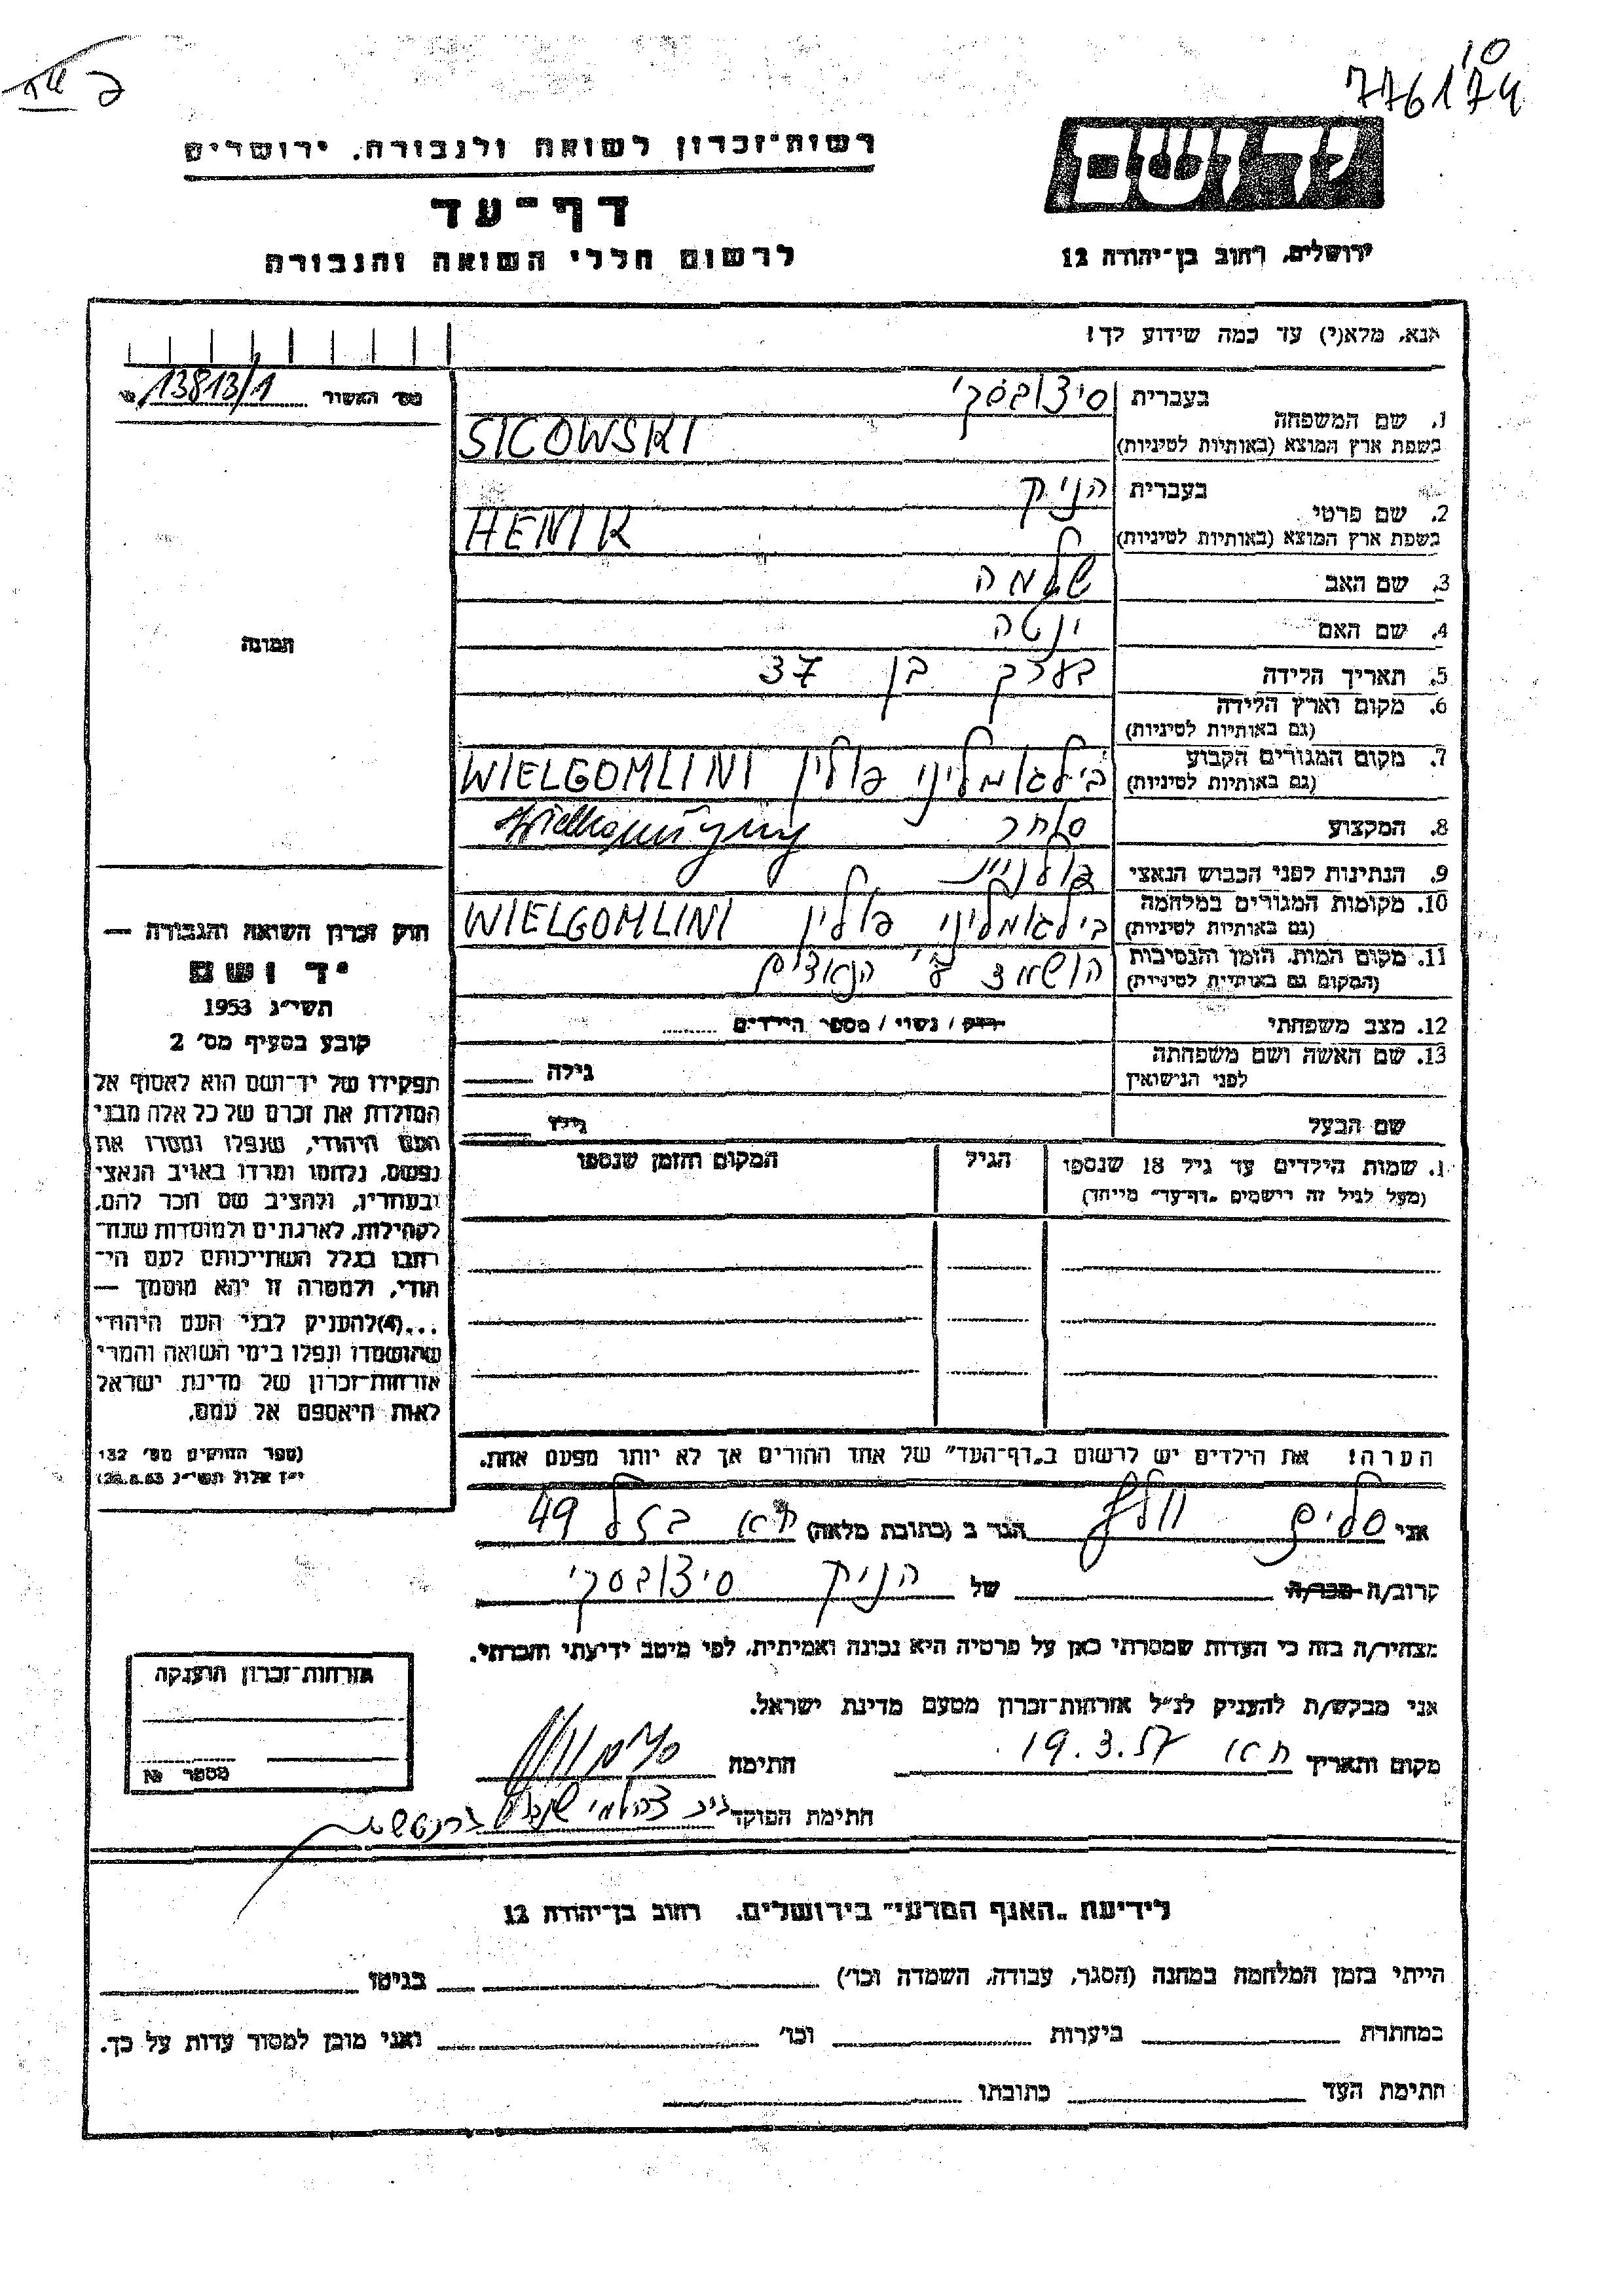 10
776174
יד ושם
ירושלים, רחוב בן־יהודה 12
רשות־זכרון לשואה ולגבורה, ירושלים
דף־עד
לרשום חללי השואה והגבורה
אנא, מלא(י) עד כמה שידוע לך!
מס׳ האשור 13813/1
1. שם המשפחה בעברית סיצובסקי
בשפת ארץ המוצא (באותיות לטיניות) SICOWSKI
2. שם פרטי בעברית הניק
בשפת ארץ המוצא (באותיות לטיניות) HENIK
3. שם האב שלמה
4. שם האם ינטה
5. תאריך הלידה בערך בן 37
6. מקום וארץ הלידה
(גם באותיות לטיניות)
7. מקום המגורים הקבוע
(גם באותיות לטיניות) בילגומליני פולין WIELGOMLINI
8. המקצוע סוחר
9. הנתינות לפני הכבוש הנאצי פולנית
10. מקומות המגורים במלחמה
(גם באותיות לטיניות) בילגומליני פולין WIELGOMLINI
11. מקום המות, הזמן והנסיבות
(המקום גם באותיות לטיניות) הושמד ע״י הנאצים
12. מצב משפחתי רווק / נשוי / מספר הילדים
13. שם האשה ושם משפחתה
לפני הנישואין גילה
שם הבעל גילו
1. שמות הילדים עד גיל 18 שנספו
(מעל לגיל זה רושמים „דף־עד״ מייחד)
הגיל
המקום והזמן שנספו
הערה! את הילדים יש לרשום ב„דף־העד״ של אחד ההורים אך לא יותר מפעם אחת.
תמונה
חוק זכרון השואה והגבורה —
יד ושם
תשי״ג 1953
קובע בסעיף מס׳ 2
תפקידו של יד־ושם הוא לאסוף אל
המולדת את זכרם של כל אלה מבני
העם היהודי, שנפלו ומסרו את
נפשם, נלחמו ומרדו באויב הנאצי
ובעוזריו, ולהציב שם וזכר להם,
לקהילות, לארגונים ולמוסדות שנח־
רבו בגלל השתייכותם לעם הי־
הודי, ולמטרה זו יהא מוסמך —
...(4)להעניק לבני העם היהודי
שהושמדו ונפלו בימי השואה והמרי
אזרחות־זכרון של מדינת ישראל
לאות היאספם אל עמם.
(ספר החוקים מס׳ 132
י״ז אלול תשי״ג 28.8.53)
אני סלים וולף הגר ב (כתובת מלאה) ת״א בצלאל 49
קרוב/ה מכר/ה של הניק סיצובסקי
מצהיר/ה בזה כי העדות שמסרתי כאן על פרטיה היא נכונה ואמיתית, לפי מיטב ידיעתי והכרתי.
אני מבקש/ת להעניק לנ״ל אזרחות־זכרון מטעם מדינת ישראל.
מקום ותאריך ת״א 19.3.57 חתימה
חתימת הפוקד
אזרחות־זכרון הוענקה
מספר №
לידיעת „האגף המדעי״ בירושלים, רחוב בן־יהודה 12
הייתי בזמן המלחמה במחנה (הסגר, עבודה, השמדה וכו׳) בגיטו
במחתרת ביערות וכו׳ ואני מוכן למסור עדות על כך.
חתימת העד כתובתו